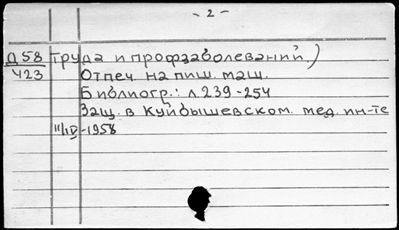 - 2 -
Д58 Труда и профзаболеваний.)
423 Отпеч. на пиш. маш.
Библиогр.: л.239-254
Защ. в Куйбышевском. мед. ин-те
11/IV-1958